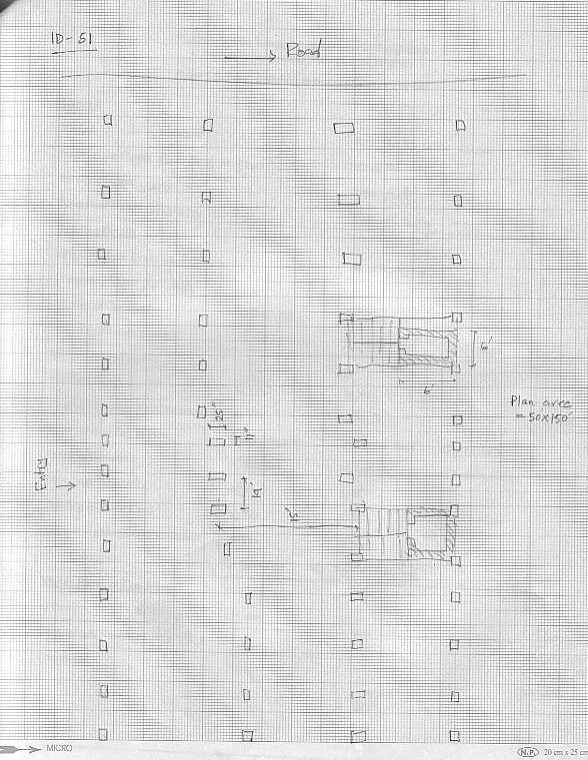 ID-51
Road
6'
6'
Plan area
= 50'x150'
25"
11"
Entry
14'
MICRO
N.P. 20 cm x 25 cm